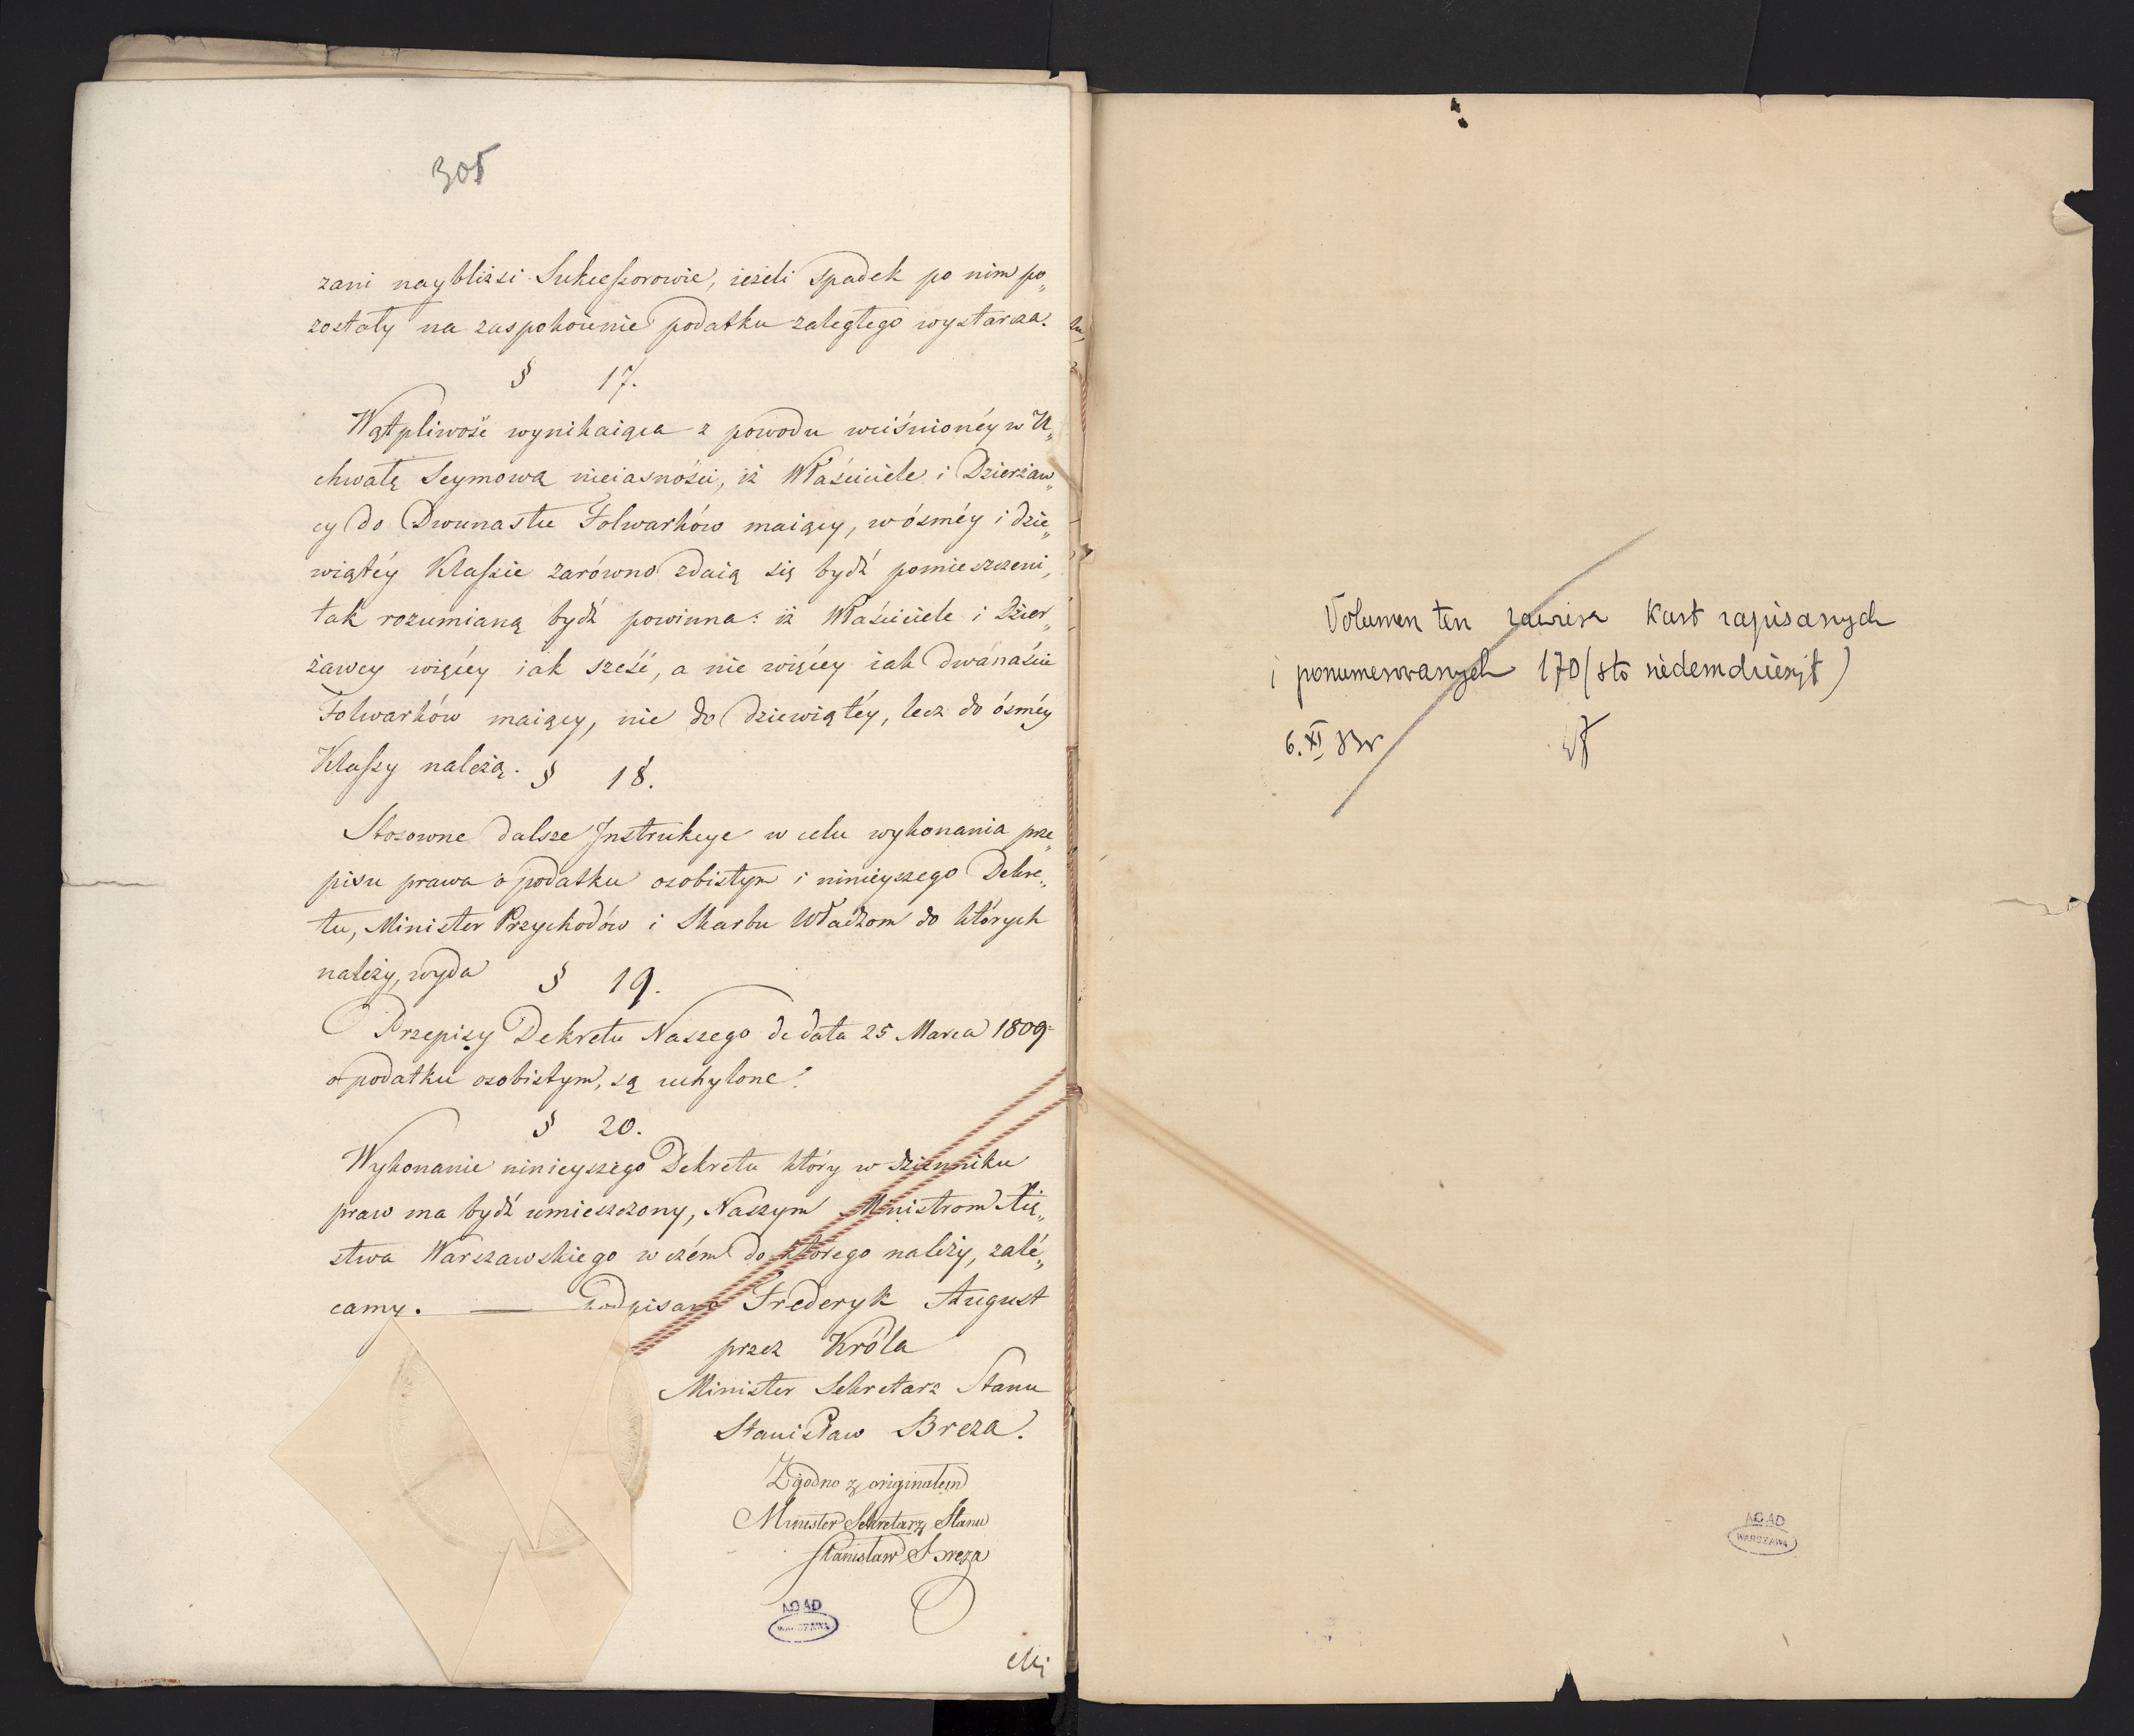 305
zani naybliżsi Sukceſsorowie, ieżeli Spadek po nim po„
zostały na zaspokoienie podatku zaległego wystarcza.
§ 17.
Wątpliwość wynikaiąca z powodu wciśnionéy w U„
chwałę Seymową nieiasności, iż Właściciele i Dzierżaw„
cy do Dwunastu Folwarków maiący, w ósméy i dzie„
wiątéy Klaſsie zarówno zdaią się bydź pomieszczeni,
tak rozumianą bydź powinna: iż Właściciele i Dzier„
żawcy więcéy iak sześć, a nie więcéy iak dwanaście
Folwarków maiący, nie do dziewiątéy, lecz do ósméy
Klaſsy należą.
§ 18.
Stosowne dalsze Instrukcye w celu wykonania prze„
pisu prawa o podatku osobistym i ninieyszego Dekre„
tu, Minister Przychodów i Skarbu Władzom do których
należy, wyda
§ 19.
Przepisy Dekretu Naszego de data 25 Marca 1809
o podatku osobistym, są uchylone.
§ 20.
Wykonanie ninieyszego Dekretu który w dzienniku
praw ma bydź umieszczony, Naszym Ministrom Xię„
stwa Warszawskiego w czém do którego należy, zalé„
camy. — Podpisano Frederyk August
przez Króla
Minister Sekretarz Stanu
Stanisław Breza.
Zgodno z originałem
Minister Sekretarz Stanu
Stanisław Breza
AGAD
WARSZAWA
Volumen ten zawiera kart zapisanych
i ponumerowanych 170 (sto siedemdziesiąt)
6. XI
AGAD
WARSZAWA